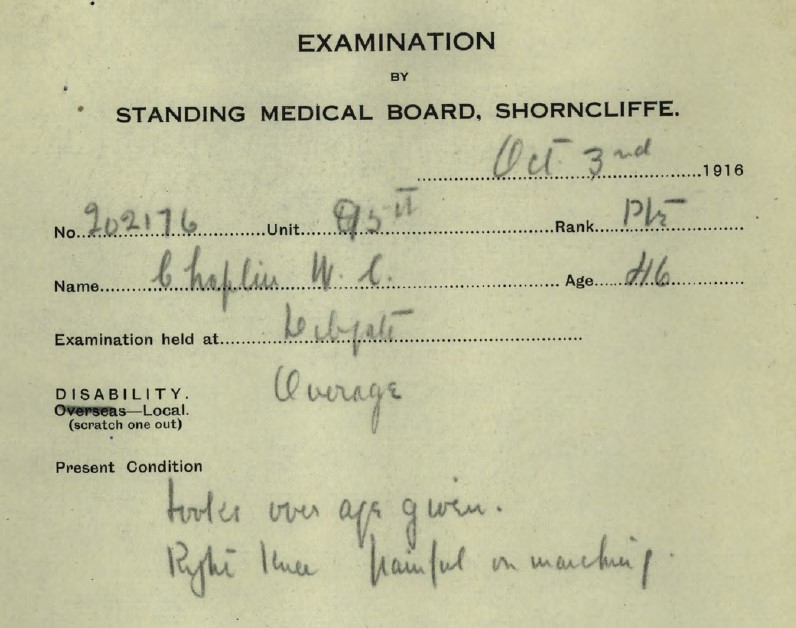 EXAMINATION
BY
STANDING MEDICAL BOARD, SHORNCLIFFE.
Oct 3nd 1916
No. 202176 Unit 95th Rank Pte
Name Chaplin W. C. Age 46
Examination held at Dibgate
DISABILITY. Overage
Overseas—Local.
(scratch one out)
Present Condition
Looks over age given.
Right knee painful on marching.